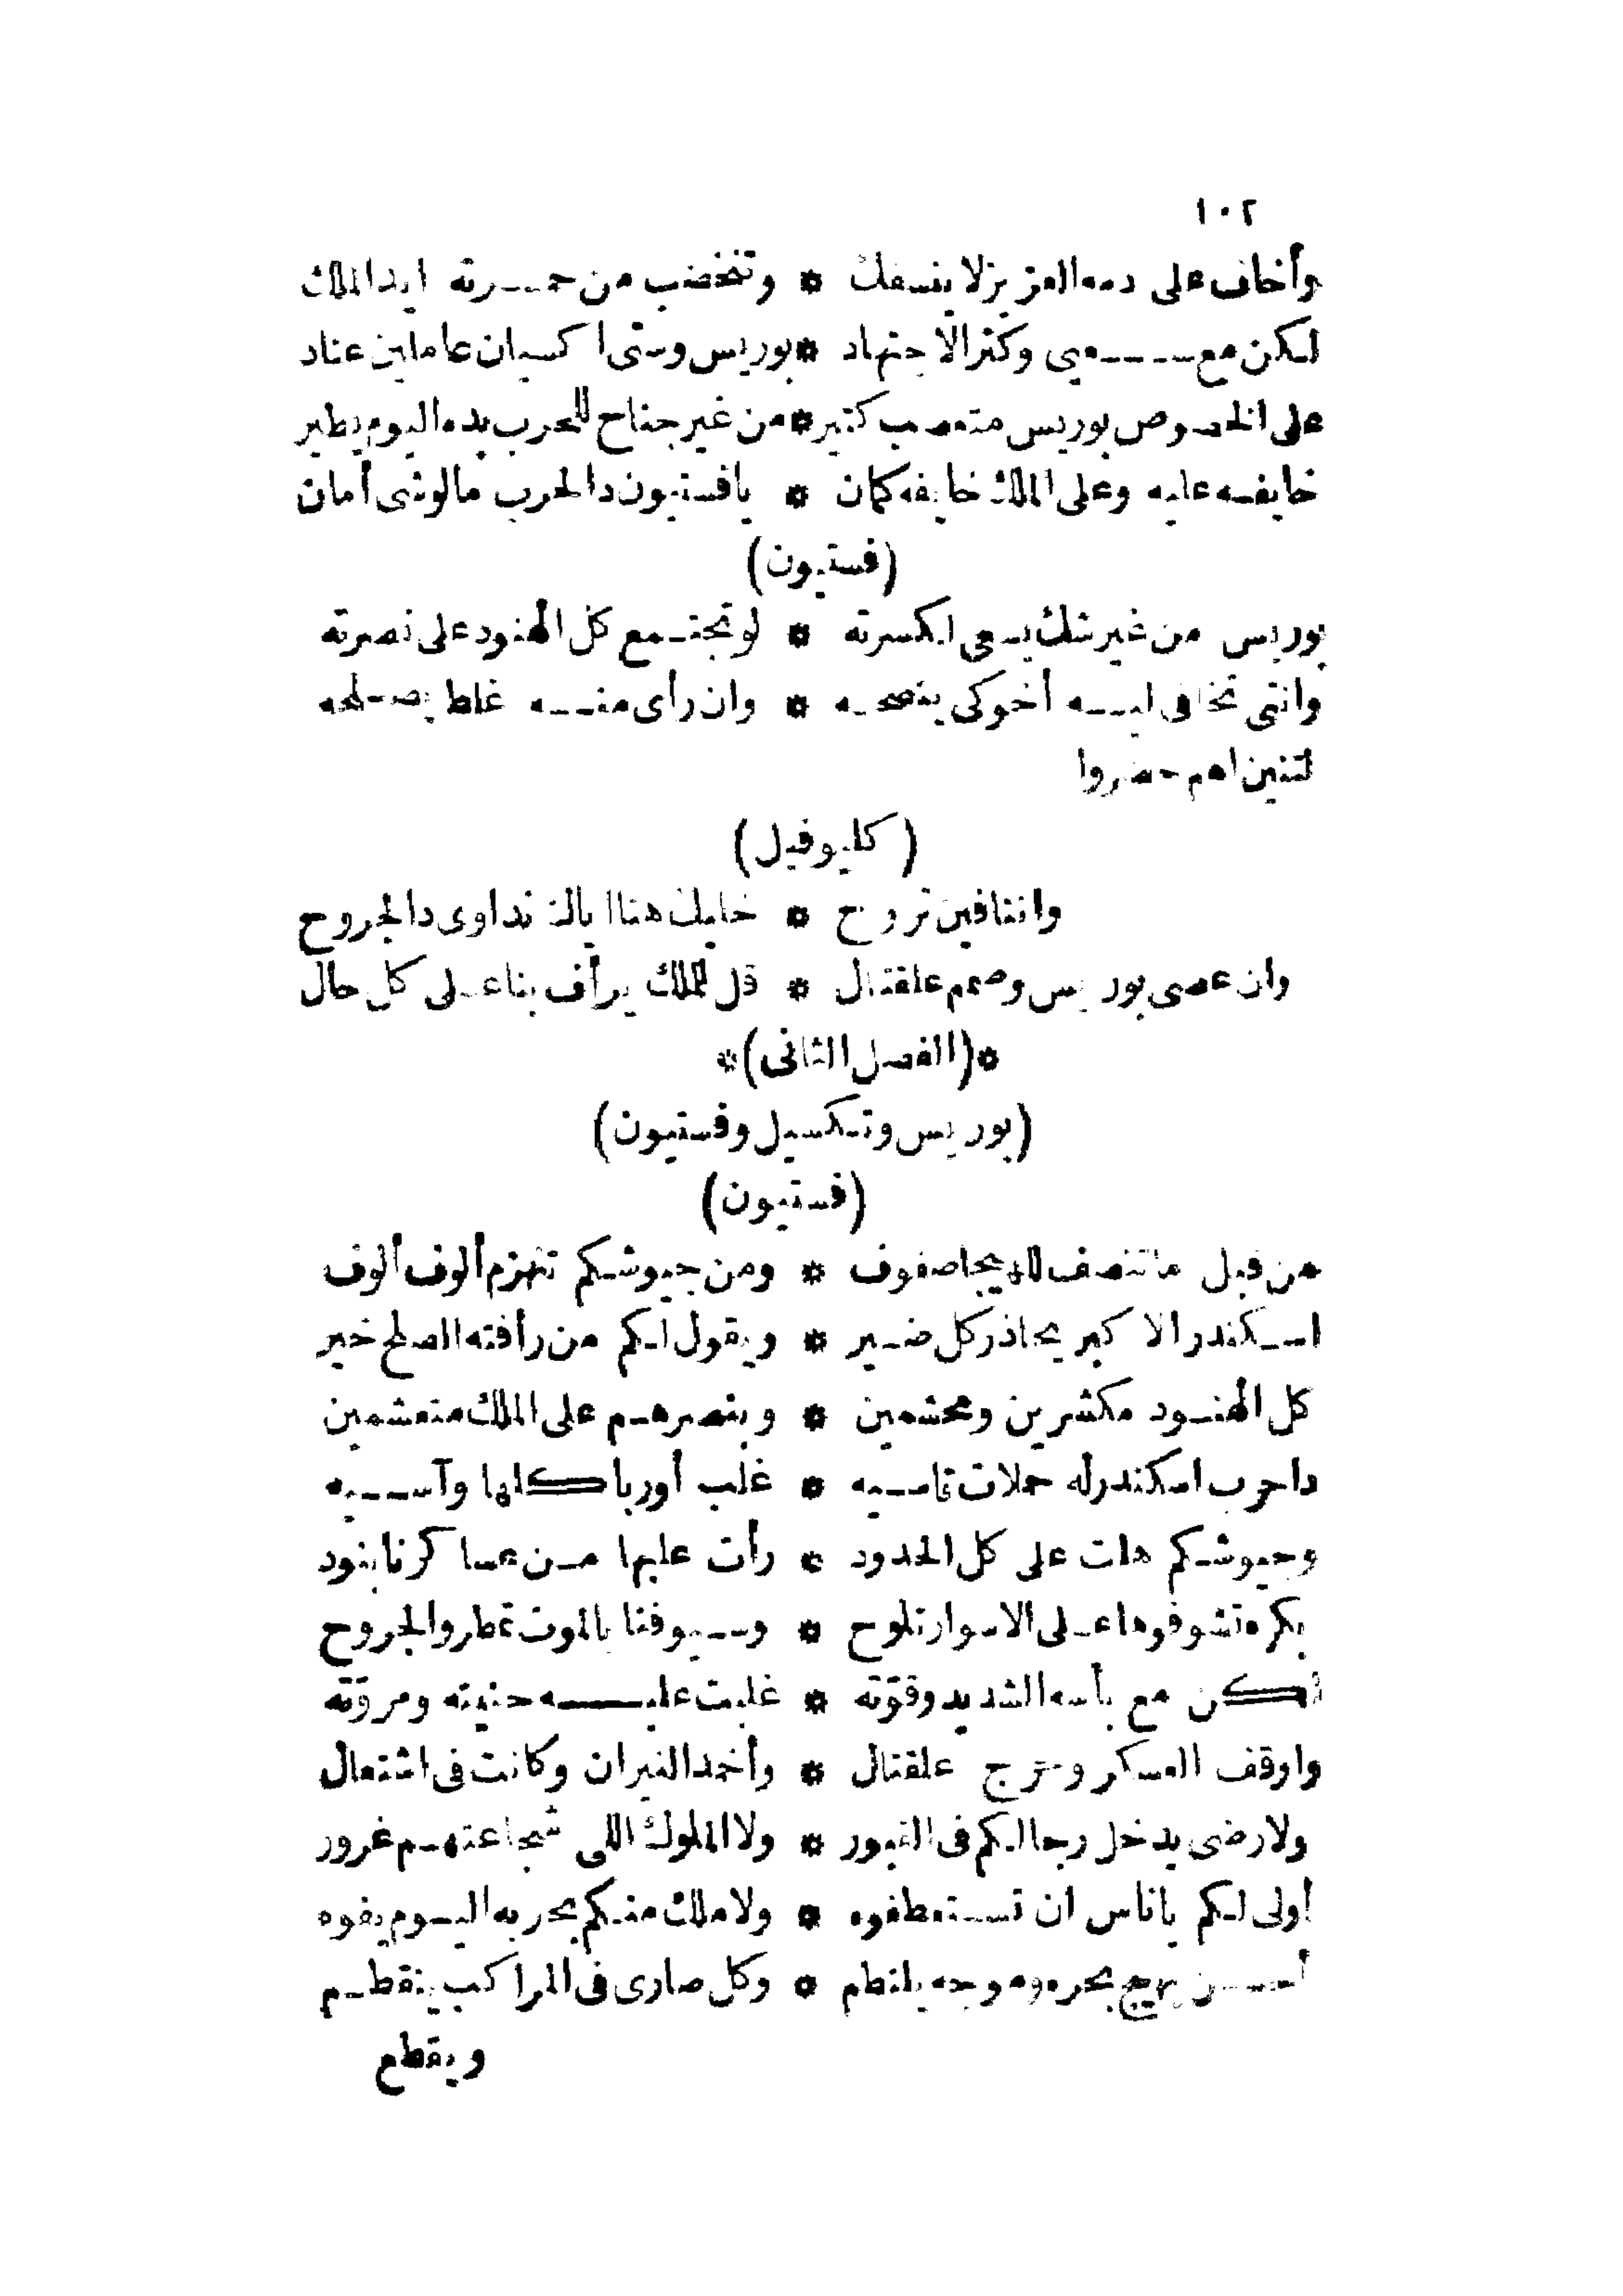 ١٠٢
وأخاف على دمه العزيز لا ينسفك * وتنخضب من حمرته ايد الملك
لكن مع سعيي وكثر الاجتهاد * بوريس وستى اكسيان عاملين عناد
على الخصوص بوريس متعصب كتير * من غير جناح للحرب بده اليوم يطير
خايفه عليه وعلى الملك خايفه كمان * يافستيون دا الحرب مالوشى أمان
(فستيون)
بوريس من غير شك يسعى لكسرته * لو تجتمع كل الهنود على نصرته
وانتى تخافى ليه أخوكى ينصحه * وان رأى منه غلط يصلحه
لتنين اهم حضروا
(كليوفيل)
وانتافين تروح * خليك هنا ايالك تداوى دا الجروح
وان عصى بوريس وصمم علقتال * قل للملك يرأف بنا على كل حال
*(الفصل الثانى)*
(بوريس وتكسيل وفستيون)
(فستيون)
من قبل ماتنصف للهيجا صفوف * ومن جيوشكم تنهزم ألوف ألوف
اسكندر الاكبر يحاذر كل ضير * ويقول لكم من رأفته الصلح خير
كل الهنود مكشرين ومحشمين * وبنصرهم على الملك متعشمين
دا حرب اسكندر له حملات قاسيه * غلب أوربا كلها وآسيه
وجيوشكم هلت على كل الحدود * رأت عليها من عساكرنا بنود
بكره تشوفوها على الاسوار تلوح * وسيوفنا بالموت تمطر والجروح
لكن مع بأسه الشديد وقوّته * غلبت عليه حنيته ومروّته
واوقف العسكر وحرج علقتال * وأخمد النيران وكانت فى اشتعال
ولارضى يدخل رجالكم فى القبور * ولا الملوك اللى شجاعتهم غرور
أولى لكم ياناس ان تستعطفوه * ولا ملك منكم بحربه اليوم يفوه
أحسن يهيج بحره وموجه يلتطم * وكل صارى فى المراكب ينقطم
ويقطع